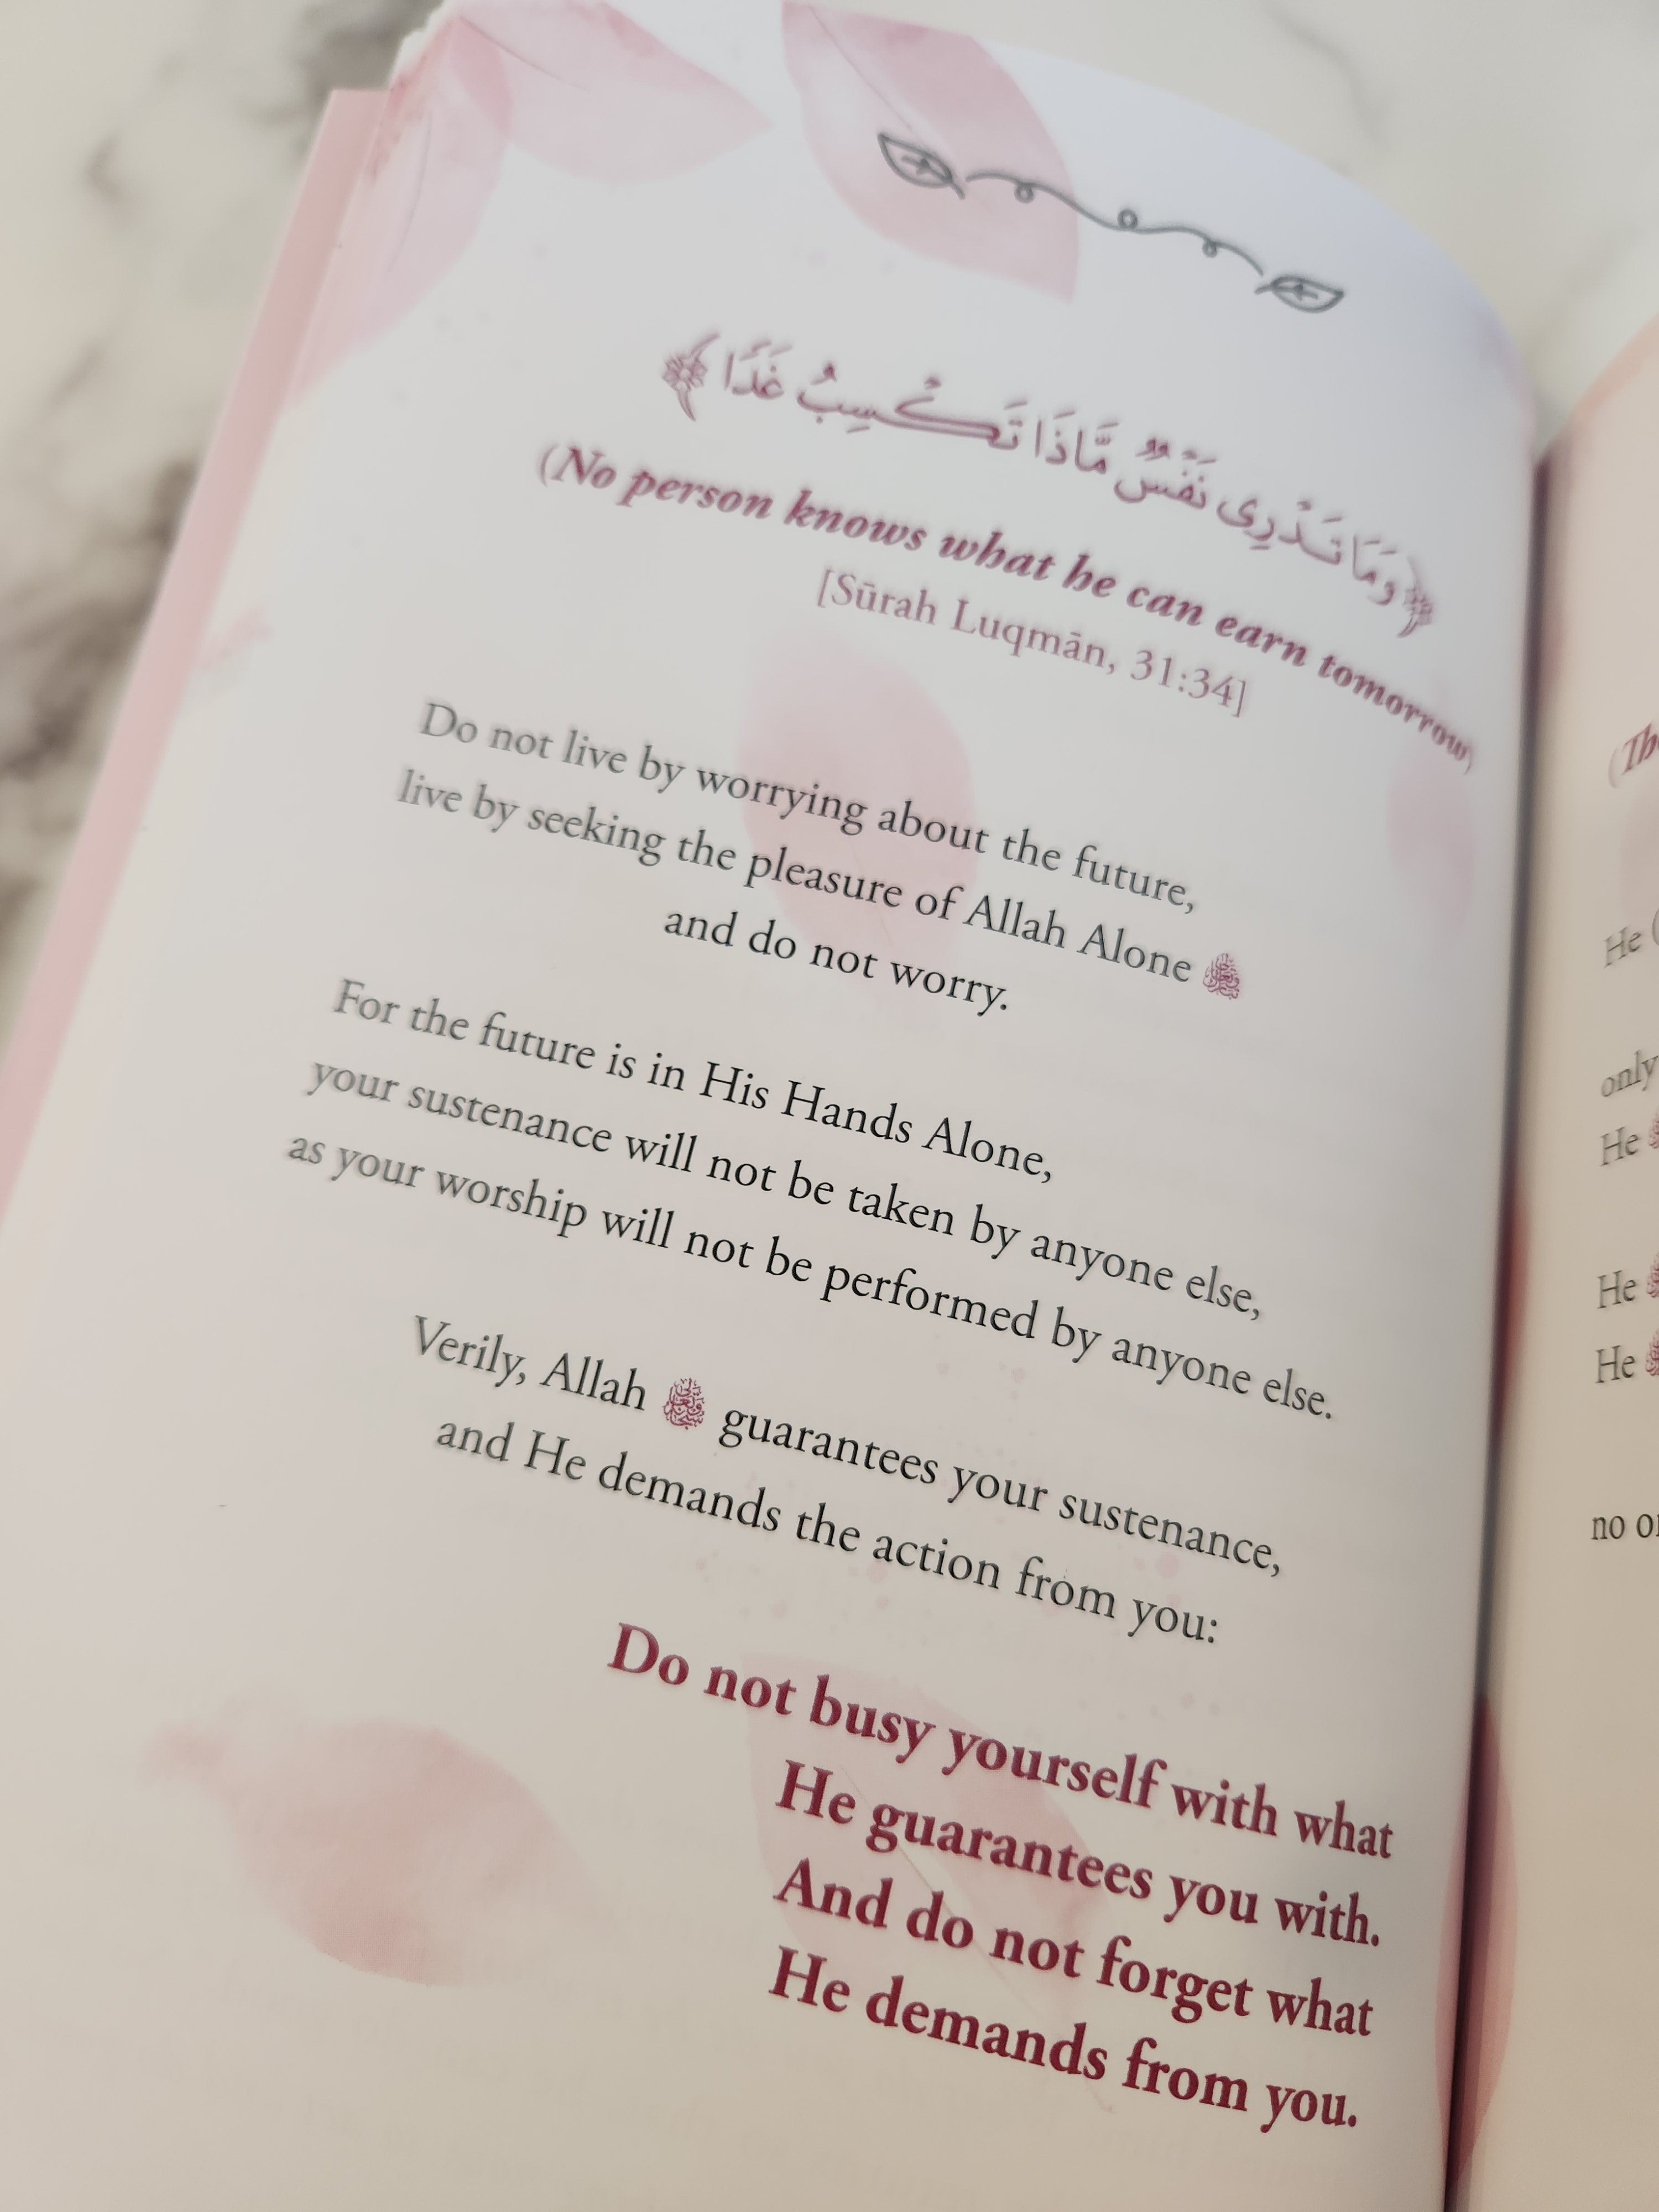 ﴿وَمَا تَدْرِى نَفْسٌ مَّاذَا تَكْسِبُ غَدًا﴾
(No person knows what he can earn tomorrow)
[Sūrah Luqmān, 31:34]
Do not live by worrying about the future,
live by seeking the pleasure of Allah Alone
and do not worry.
For the future is in His Hands Alone,
your sustenance will not be taken by anyone else,
as your worship will not be performed by anyone else.
Verily, Allah guarantees your sustenance,
and He demands the action from you:
Do not busy yourself with what
He guarantees you with.
And do not forget what
He demands from you.
He
only
He
He
He
no